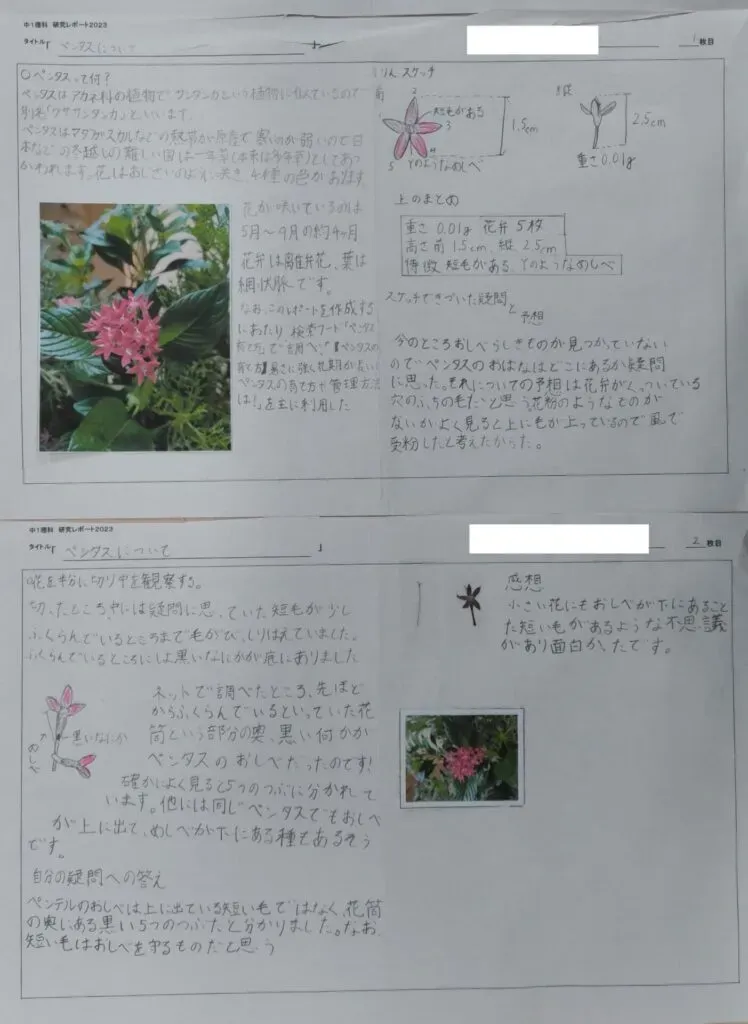 中1理科 研究レポート2023
タイトル「 ペンタスについて 」
1枚目
○ペンタスって何?
ペンタスはアカネ科の植物で サンタンカという植物に似ているので
別名「クササンタンカ」といいます。
ペンタスはマダガスカルなどの熱帯が原産で 寒いのが弱いので日
本などの冬越しの難しい国は一年草(本来は多年草)としてあつ
かわれます。花はあじさいのように咲き、4種の色があります。
花が咲いているのは
5月〜9月の約4ヶ月
花弁は離弁花、葉は
網状脈です。
なお、このレポートを作成する
にあたり 検索ワード「ペンタス
育て方」で調べ、「ペンタスの
育て方 暑さに強く花期が長い!
ペンタスの育て方や管理方法
は!」を主に利用した
りんスケッチ
前
2
短毛がある
1
3
4
5
Yのようなめしべ
1.5cm
縦
2.5cm
重さ0.01g
上のまとめ
重さ 0.01g 花弁 5枚
高さ前 1.5cm 縦 2.5cm
特徴 短毛がある、Yのようなめしべ
スケッチできづいた疑問
と
予想
今のところおしべらしきものが見つかっていない
のでペンタスのおばなはどこにあるか疑問
に思った。それについての予想は花弁がくっついている
穴のふちの毛だと思う。花粉のようなものが
ないかよく見ると上に毛が上っているので風で
受粉したと考えたかった。
中1理科 研究レポート2023
タイトル「 ペンタスについて 」
2枚目
○花を半分に切り中を観察する。
切ったところ、中には疑問に思っていた短毛が少し
ふくらんでいるところまで毛がびっしりはえていました。
ふくらんでいるところには黒いなにかが底にありました
黒いなにか
おしべ
ネットで調べたところ、先ほど
からふくらんでいるといっていた花
筒という部分の奥、黒い何かが
ペンタスのおしべだったのです!
確かによく見ると5つのつぶに分かれて
います。他には同じペンタスでもおしべ
が上に出て、めしべが下にある種もあるそう
です。
自分の疑問への答え
ペンテルのおしべは上に出ている短い毛ではなく、花筒
の奥にある黒い5つのつぶだと分かりました。なお、
短い毛はおしべを守るものだと思う
感想
小さい花にもおしべが下にあること
た短い毛があるような不思議
があり面白かったです。